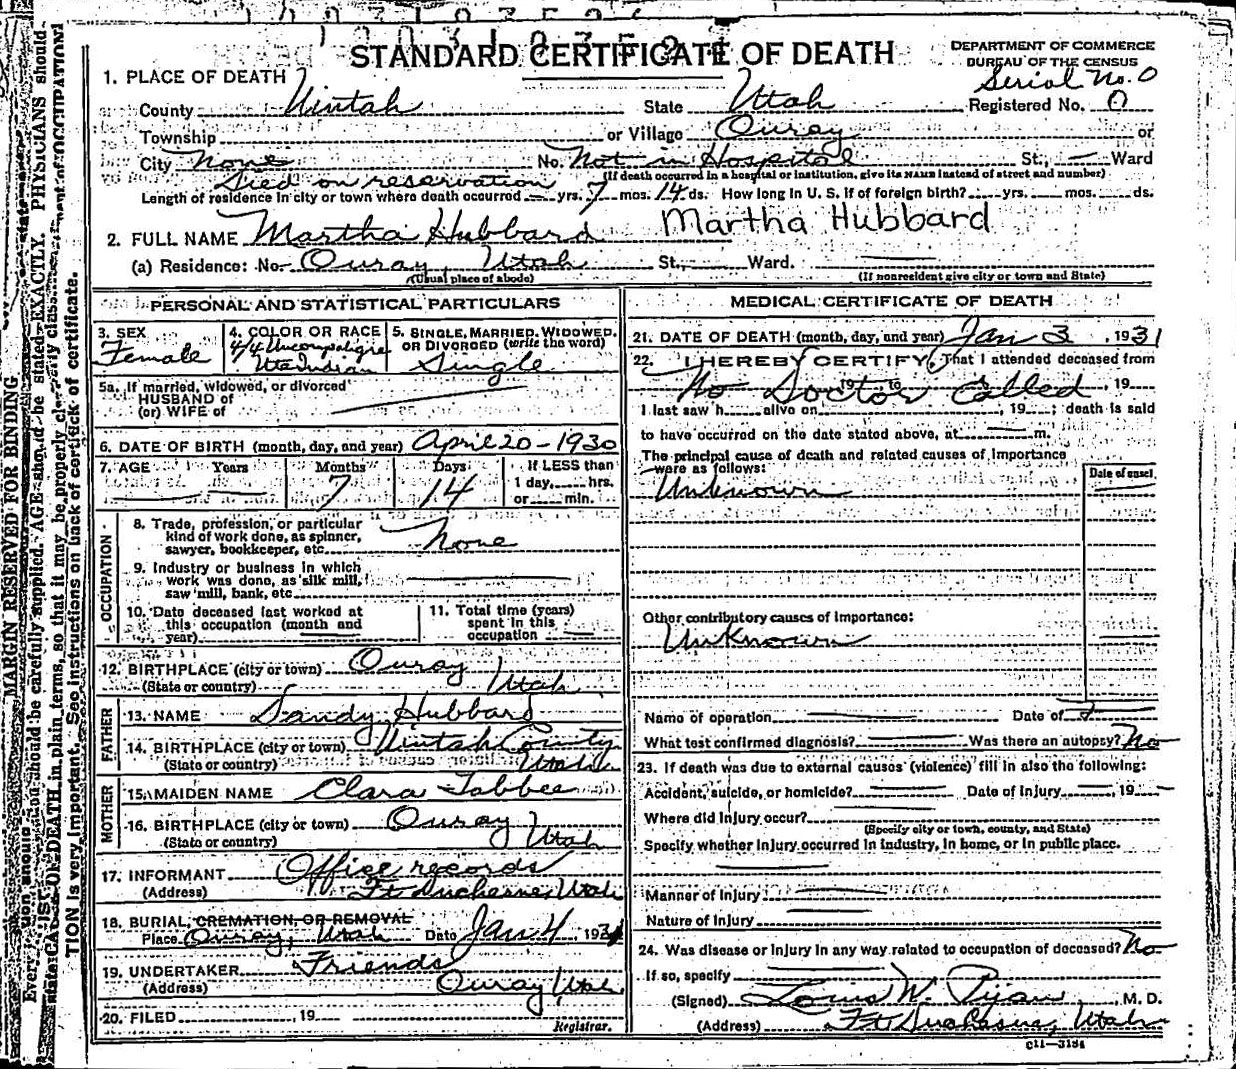 STANDARD CERTIFICATE OF DEATH
DEPARTMENT OF COMMERCE
BUREAU OF THE CENSUS
Serial No. 0
1. PLACE OF DEATH
County Uintah State Utah Registered No. 0
Township or Village Ouray or
City None No. Not in Hospital St., Ward
(If death occurred in a hospital or institution, give its NAME instead of street and number)
Died on reservation
Length of residence in city or town where death occurred — yrs. 7 mos. 14 ds. How long in U. S. if of foreign birth? yrs. mos. ds.
2. FULL NAME Martha Hubbard Martha Hubbard
(a) Residence: No. Ouray, Utah St., Ward.
(Usual place of abode) (If nonresident give city or town and State)
PERSONAL AND STATISTICAL PARTICULARS
3. SEX
Female
4. COLOR OR RACE
4/4 Uncompahgre
Ute Indian
5. SINGLE, MARRIED, WIDOWED,
OR DIVORCED (write the word)
Single
5a. If married, widowed, or divorced
HUSBAND of
(or) WIFE of
6. DATE OF BIRTH (month, day, and year) April 20 - 1930
7. AGE Years Months Days If LESS than
7 14 1 day, hrs.
or min.
OCCUPATION
8. Trade, profession, or particular
kind of work done, as spinner,
sawyer, bookkeeper, etc. None
9. Industry or business in which
work was done, as silk mill,
saw mill, bank, etc.
10. Date deceased last worked at
this occupation (month and
year)
11. Total time (years)
spent in this
occupation
12. BIRTHPLACE (city or town) Ouray
(State or country) Utah
FATHER
13. NAME Sandy Hubbard
14. BIRTHPLACE (city or town) Uintah County
(State or country) Utah
MOTHER
15. MAIDEN NAME Clara Tabbee
16. BIRTHPLACE (city or town) Ouray
(State or country) Utah
17. INFORMANT Office records
(Address) Ft Duchesne, Utah
18. BURIAL, CREMATION, OR REMOVAL
Place Ouray, Utah Date Jan 4, 1931
19. UNDERTAKER Friends
(Address) Ouray, Utah
20. FILED , 19
Registrar.
MEDICAL CERTIFICATE OF DEATH
21. DATE OF DEATH (month, day, and year) Jan 3, 1931
22. I HEREBY CERTIFY, That I attended deceased from
No Doctor Called , 19
I last saw h alive on , 19 ; death is said
to have occurred on the date stated above, at m.
The principal cause of death and related causes of importance
were as follows:
Date of onset
Unknown
Other contributory causes of importance:
Unknown
Name of operation Date of
What test confirmed diagnosis? Was there an autopsy? No
23. If death was due to external causes (violence) fill in also the following:
Accident, suicide, or homicide? Date of injury , 19
Where did injury occur?
(Specify city or town, county, and State)
Specify whether injury occurred in industry, in home, or in public place.
Manner of injury
Nature of injury
24. Was disease or injury in any way related to occupation of deceased? No
If so, specify
(Signed) Louis W. , M. D.
(Address) Ft Duchesne, Utah
MARGIN RESERVED FOR BINDING